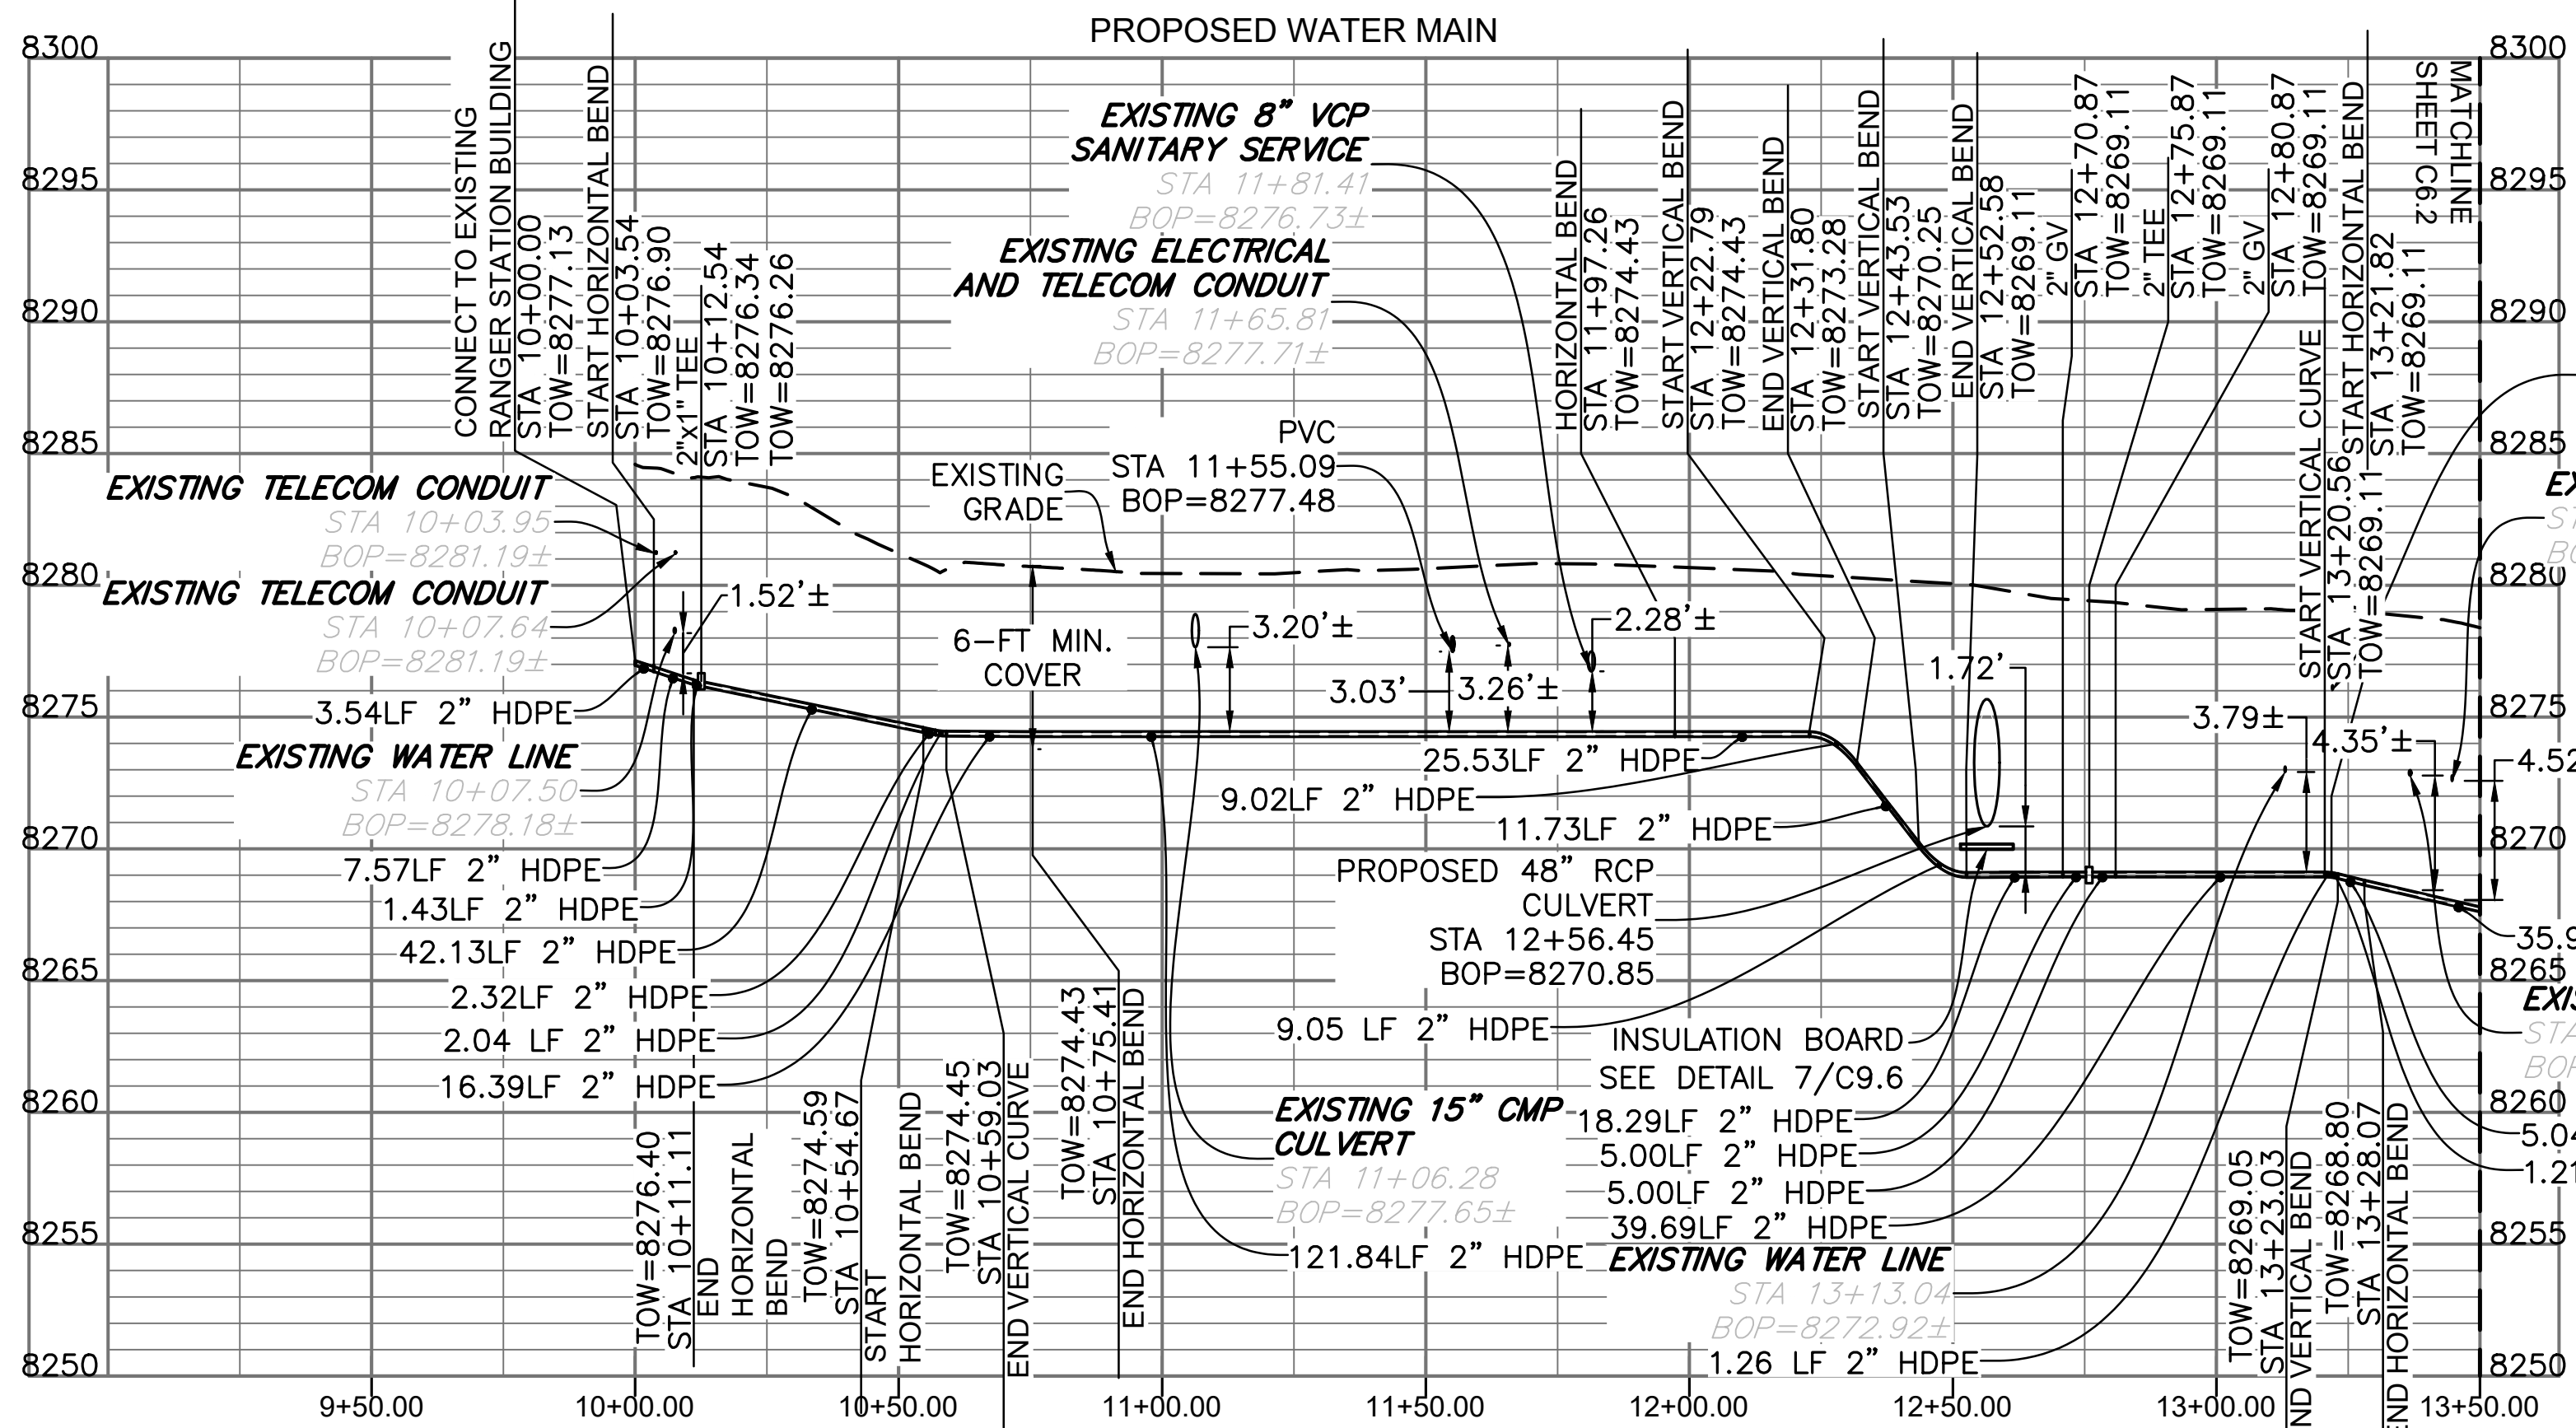 PROPOSED WATER MAIN
8300
8295
8290
8285
8280
8275
8270
8265
8260
8255
8250
CONNECT TO EXISTING
RANGER STATION BUILDING
STA 10+00.00
TOW=8277.13
START HORIZONTAL BEND
STA 10+03.54
TOW=8276.90
2"x1" TEE
STA 10+12.54
TOW=8276.34
TOW=8276.26
EXISTING 8" VCP
SANITARY SERVICE
STA 11+81.41
BOP=8276.73±
EXISTING ELECTRICAL
AND TELECOM CONDUIT
STA 11+65.81
BOP=8277.71±
PVC
STA 11+55.09
BOP=8277.48
EXISTING
GRADE
HORIZONTAL BEND
STA 11+97.26
TOW=8274.43
START VERTICAL BEND
STA 12+22.79
TOW=8274.43
END VERTICAL BEND
STA 12+31.80
TOW=8273.28
START VERTICAL BEND
STA 12+43.53
TOW=8270.25
END VERTICAL BEND
STA 12+52.58
TOW=8269.11
2" GV
STA 12+70.87
TOW=8269.11
2" TEE
STA 12+75.87
TOW=8269.11
2" GV
STA 12+80.87
TOW=8269.11
START VERTICAL CURVE
STA 13+20.56
TOW=8269.11
START HORIZONTAL BEND
STA 13+21.82
TOW=8269.11
MATCHLINE
SHEET C6.2
EXISTING TELECOM CONDUIT
STA 10+03.95
BOP=8281.19±
EXISTING TELECOM CONDUIT
STA 10+07.64
BOP=8281.19±
1.52'±
6-FT MIN.
COVER
3.20'±
3.03'
3.26'±
2.28'±
1.72'
3.79±
4.35'±
4.52
3.54LF 2" HDPE
EXISTING WATER LINE
STA 10+07.50
BOP=8278.18±
7.57LF 2" HDPE
1.43LF 2" HDPE
42.13LF 2" HDPE
2.32LF 2" HDPE
2.04 LF 2" HDPE
16.39LF 2" HDPE
25.53LF 2" HDPE
9.02LF 2" HDPE
11.73LF 2" HDPE
PROPOSED 48" RCP
CULVERT
STA 12+56.45
BOP=8270.85
9.05 LF 2" HDPE
INSULATION BOARD
SEE DETAIL 7/C9.6
18.29LF 2" HDPE
5.00LF 2" HDPE
5.00LF 2" HDPE
39.69LF 2" HDPE
EXISTING WATER LINE
STA 13+13.04
BOP=8272.92±
1.26 LF 2" HDPE
EXISTING 15" CMP
CULVERT
STA 11+06.28
BOP=8277.65±
121.84LF 2" HDPE
TOW=8276.40
STA 10+11.11
END
HORIZONTAL
BEND
TOW=8274.59
STA 10+54.67
START
HORIZONTAL BEND
TOW=8274.45
STA 10+59.03
END VERTICAL CURVE
TOW=8274.43
STA 10+75.41
END HORIZONTAL BEND
TOW=8269.05
STA 13+23.03
END VERTICAL BEND
TOW=8268.80
STA 13+28.07
END HORIZONTAL BEND
35.9
5.04
1.21
8300
8295
8290
8285
8280
8275
8270
8265
8260
8255
8250
9+50.00
10+00.00
10+50.00
11+00.00
11+50.00
12+00.00
12+50.00
13+00.00
13+50.00